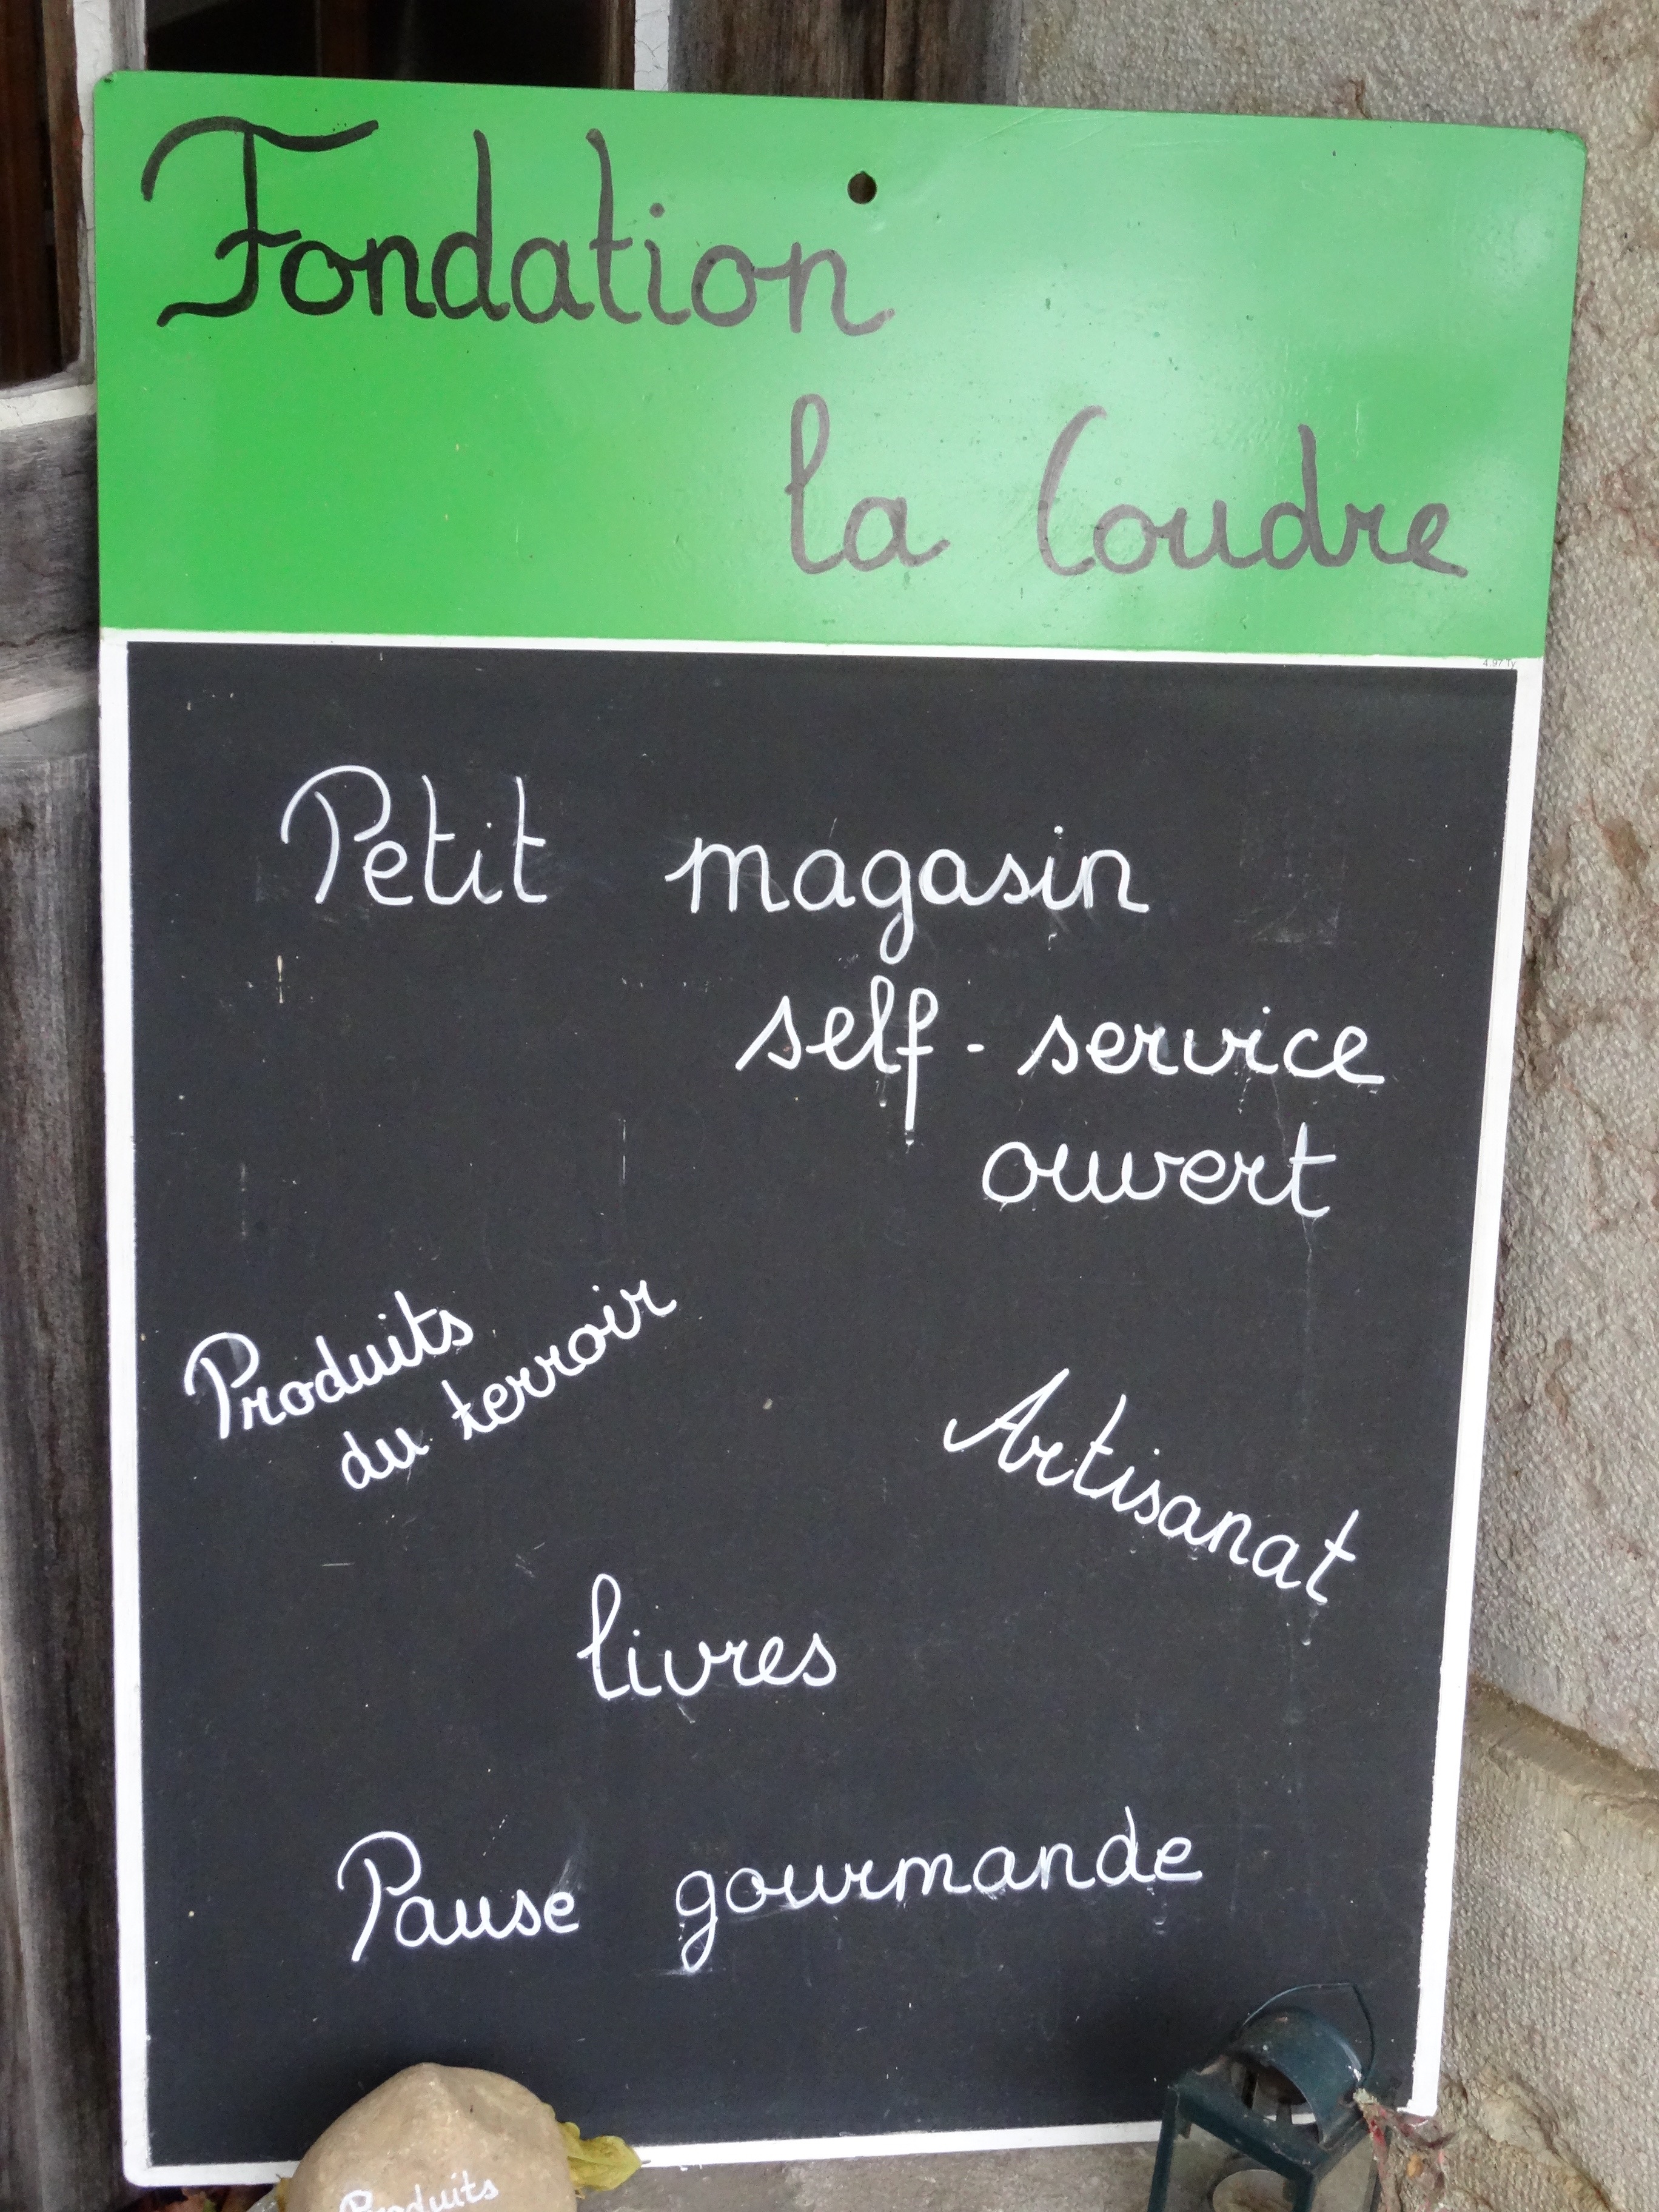 Fondation
la Coudre
4.97 Ty
Petit magasin
self-service
ouvert
Produits
du terroir
Artisanat
livres
Pause gourmande
Produits